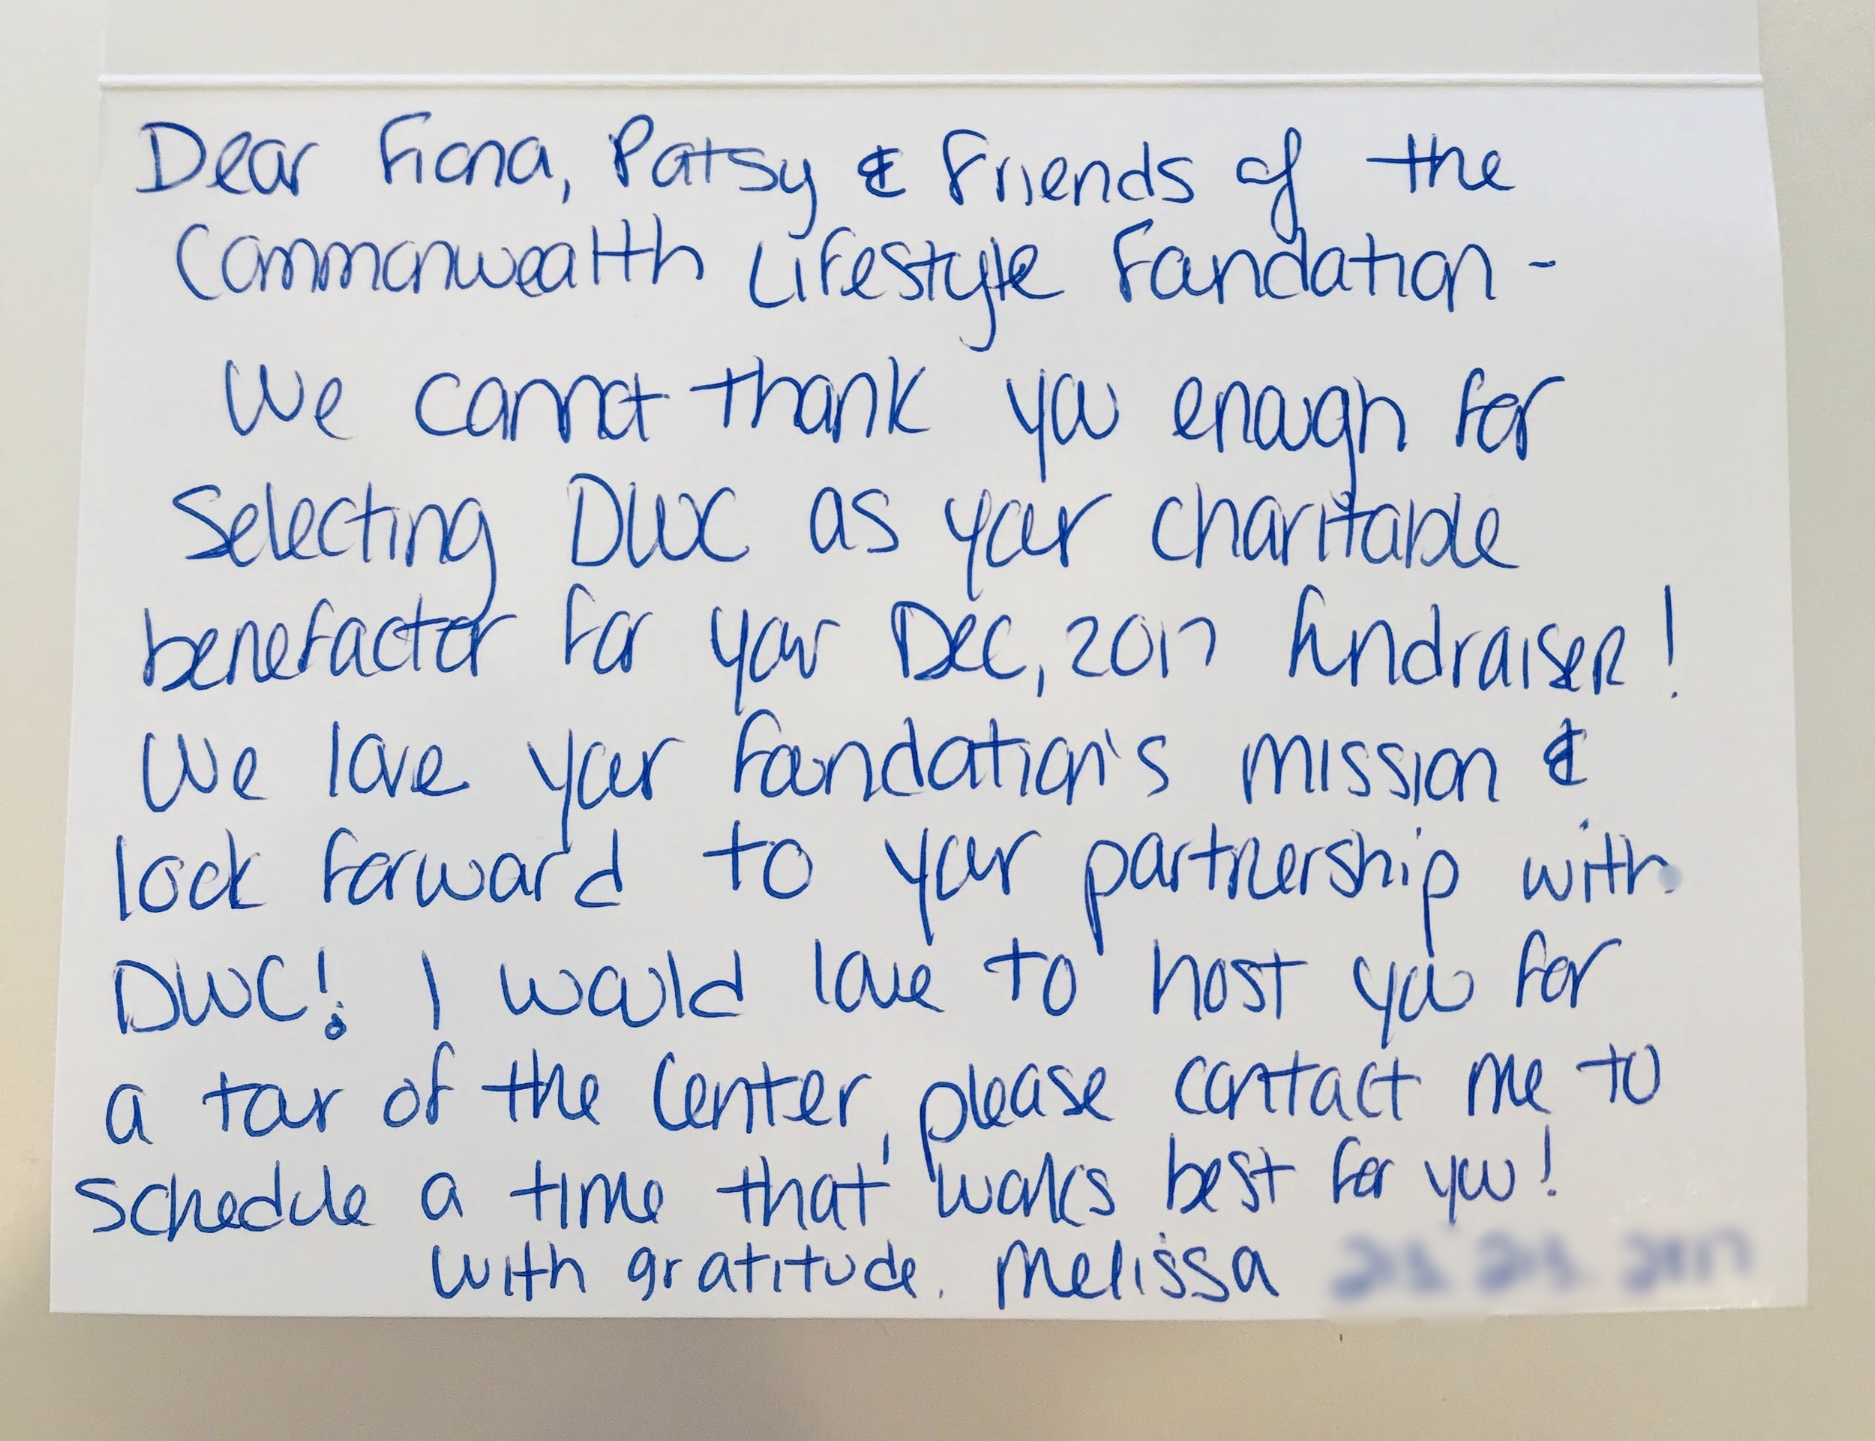 Dear Fiona, Patsy & Friends of the
Commonwealth Lifestyle Foundation -
We cannot thank you enough for
Selecting DWC as your charitable
benefactor for your Dec, 2017 fundraiser!
We love your foundation's mission &
look forward to your partnership with
DWC! I would love to host you for
a tour of the Center, please contact me to
schedule a time that works best for you!
with gratitude. Melissa